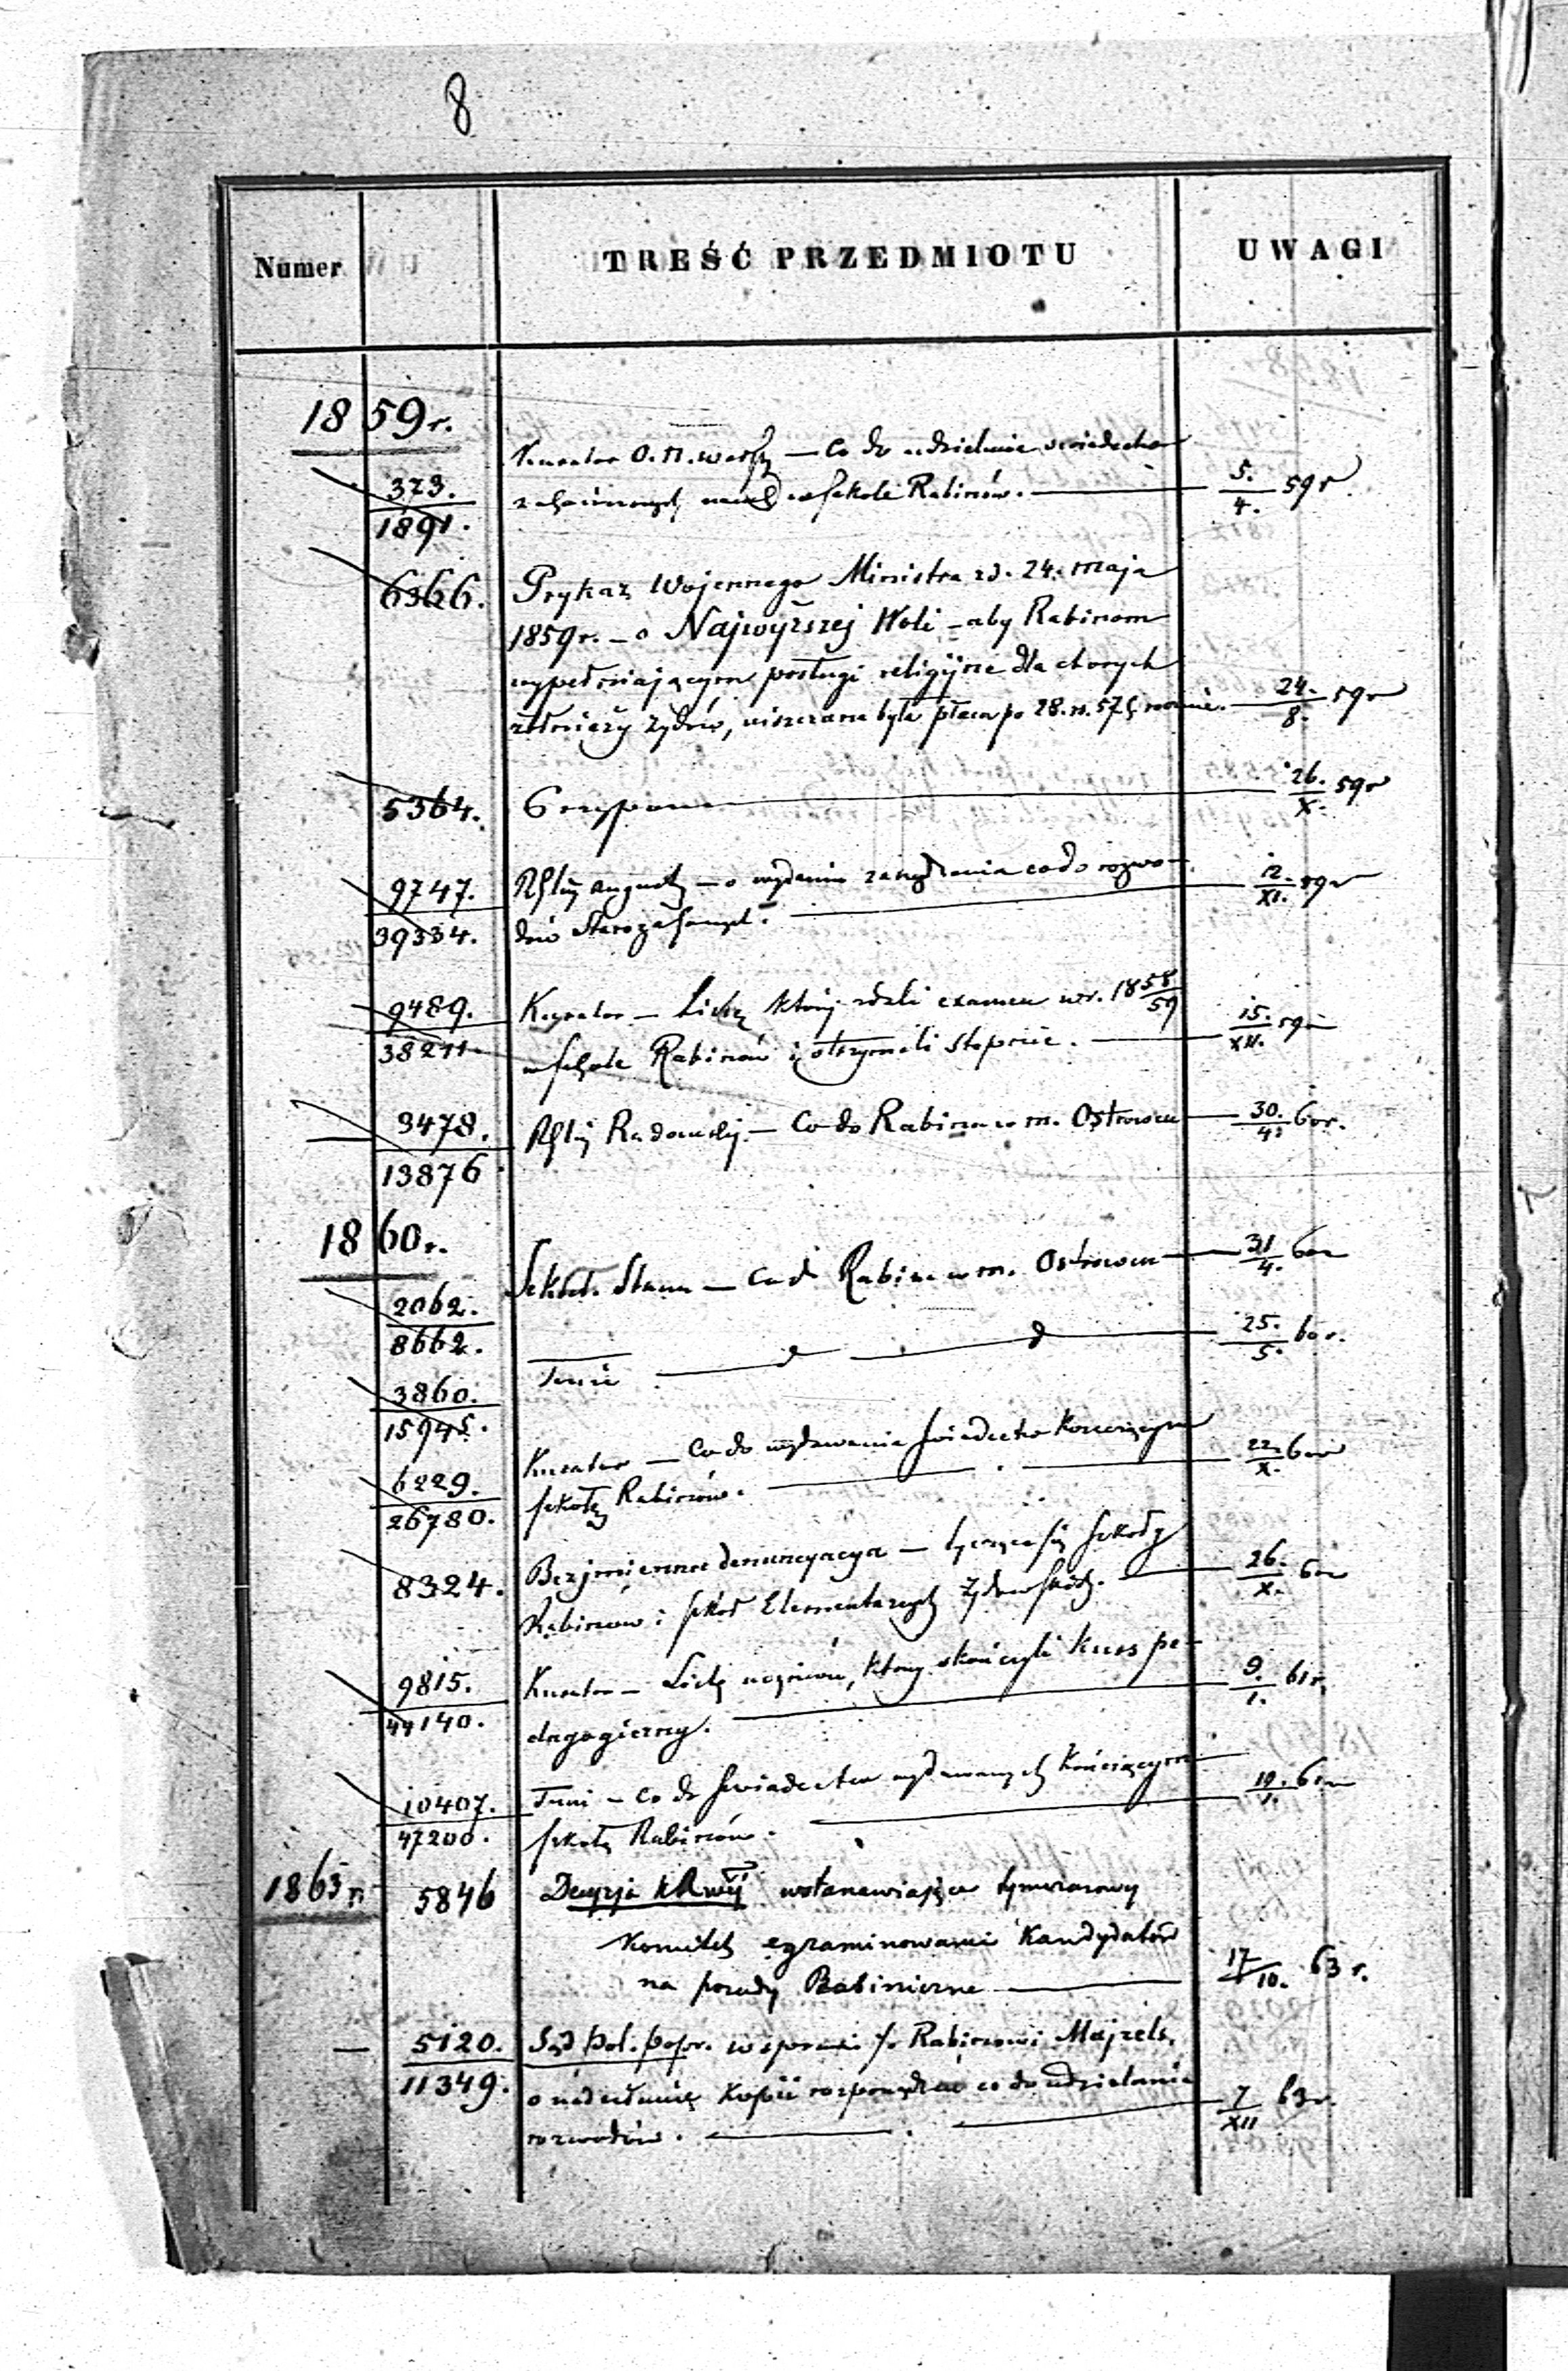 8
Numer TREŚĆ PRZEDMIOTU UWAGI
1859 r.
373. Kurator O. N. Warsz — Co do udzielania świadectw
1891. w szkole Rabinów. — 5./4. 59 r
6366. Prykaz Wojennego Ministra zd. 24. maja
1859 r. – o Najwyższej Woli – aby Rabinom
wypełniającym posługi religijne dla chorych
żołnierzy Żydów, uiszczana była płaca po 28. 57 24./8. 59 r
5364. 26./X. 59 r
9747. August — o wydanie co do rozwo-
39334. dów Starozakonnych. — 12./XI. 59 r
9489. Kurator — Listę którzy zdali examen w r. 1858/59
38211 w szkole Rabinów i otrzymali stopnie. — 15./XII. 59 r
3478. Radomskiej. — Co do Rabina w m. Ostrowcu — 30./4. 60 r.
13876
1860 r.
2062. Stanu — Co do Rabina w m. Ostrowcu — 31/4. 60 r
8662.
3860. Tenże — d — d — 25./5. 60 r.
15945.
6229. Kurator — Co do wydawania świadectw kończącym
26780. szkołę Rabinów. — 22./X. 60 r
8324. Bezimienna denuncyacya — tycząca się szkoły
Rabinów i szkół Elementarnych Żydowskich. — 26./X. 60 r
9815. Kurator — Listę uczniów, którzy skończyli kurs pe-
44140. dagogiczny. — 9./1. 61 r.
10407. Tenże — co do świadectw wydawanych kończącym
47200. szkołę Rabinów. — 19./1. 61 r
1863 r. 5846 Decyzja ustanawiająca tymczasowy
Komitet egzaminowania Kandydatów
na posady Rabiniczne — 17/10. 63 r.
— 5120. Sąd Pol. Popr. w sprawie Rabinowi Majzels,
11349. o nadesłanie kopii rozporządzeń co do udzielania
rozwodów. — 7/XII 63 r.